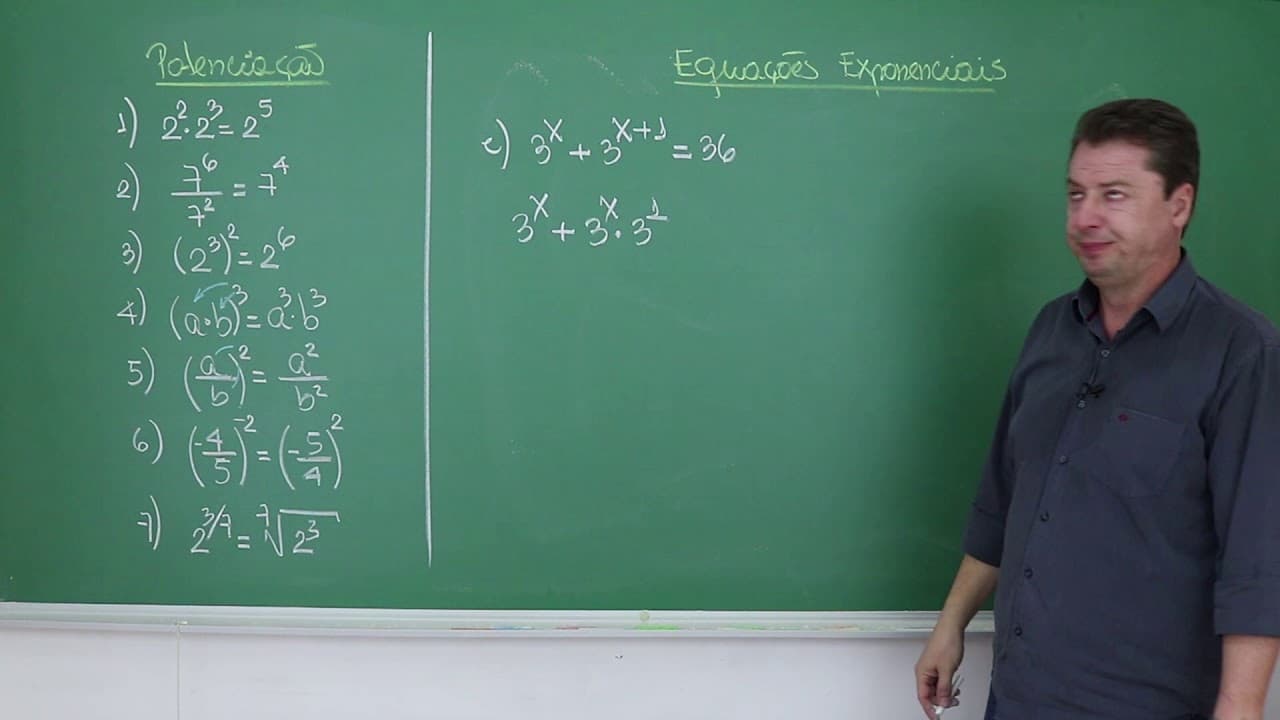 Potenciação
1) 2² · 2³ = 2⁵
2) 7⁶/7² = 7⁴
3) (2³)² = 2⁶
4) (a·b)³ = a³·b³
5) (a/b)² = a²/b²
6) (-4/5)⁻² = (-5/4)²
7) 2^(3/7) = ⁷√2³
Equações Exponenciais
e) 3^x + 3^(x+1) = 36
3^x + 3^x · 3¹